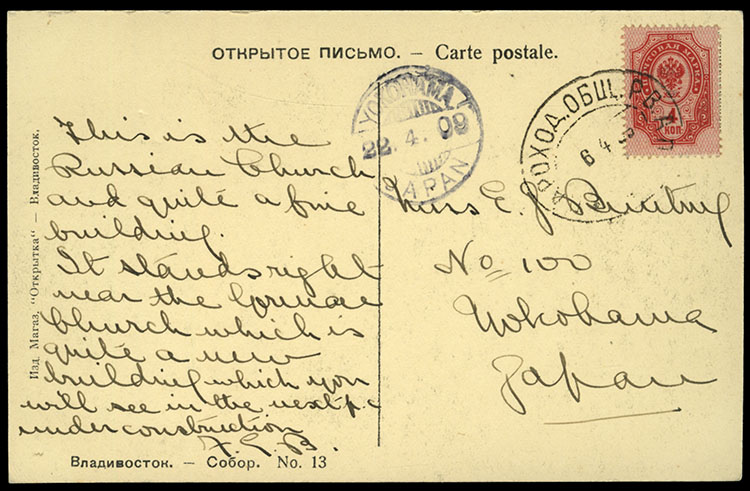 ОТКРЫТОЕ ПИСЬМО. – Carte postale.
ПОЧТОВАЯ МАРКА
4
КОП.
YOKOHAMA
22.4.09
JAPAN
ПАРОХОД. ОБЩ. Р. В.
6 4
This is the
Russian Church
and quite a fine
building.
It stands right
near the German
Church which is
quite a new
building which you
will see in the next p.c
under construction
F. E. B.
Miss E. J. Bunting
No 100
Yokohama
Japan
Изд. Магаз. "Открытка" – Владивосток.
Владивосток. – Собор. No. 13